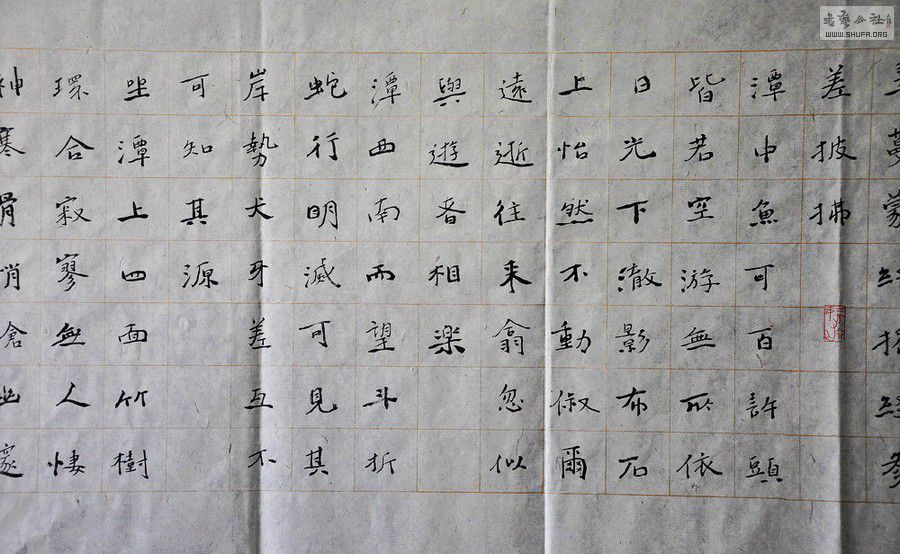 蔓蒙參
差披拂
潭中魚可百許頭
皆若空游無所依
日光下澈影布石
上怡然不動俶爾
遠逝往来翕忽似
與遊者相楽
潭西南而望斗折
蛇行明滅可見其
岸勢犬牙差互不
可知其源
坐潭上四面竹樹
環合寂寥無人悽
神寒骨悄愴幽邃
书艺公社
WWW.SHUFA.ORG